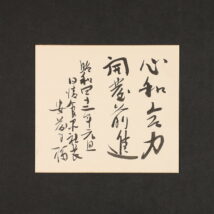 心和合力
開発前進
昭和四十三年元旦
日清食品社長
安藤百福